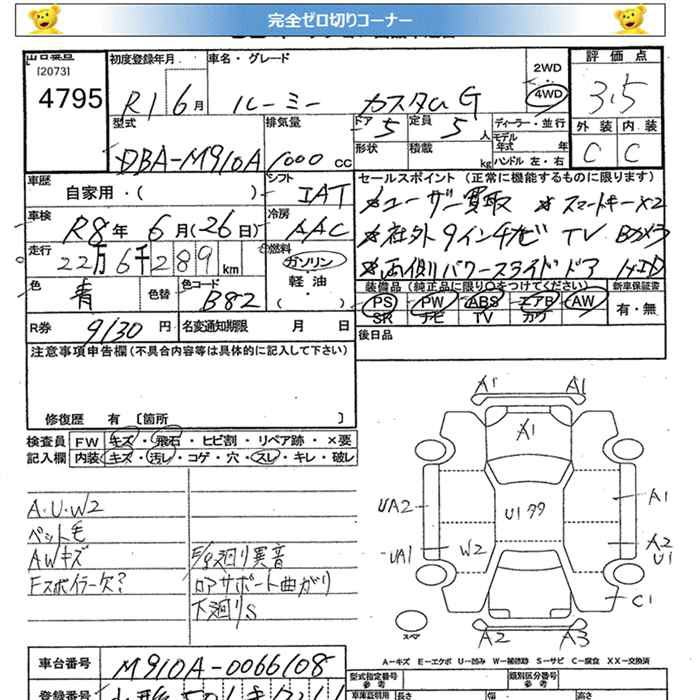 完全ゼロ切りコーナー
[2073]
4795
初度登録年月
R1 6月
車名・グレード
ルーミー カスタムG
2WD
4WD
評価点
3.5
外装 内装
C C
型式
DBA-M910A
排気量
1000 cc
ドア 5
定員 5 人
形状
積載 kg
ディーラー・並行
モデル年式 年
ハンドル 左・右
車歴
自家用・( )
シフト
IAT
車検
R8年 6月(26日)
冷房
AAC
走行
22万6千289km
燃料
ガソリン
軽油
( )
色
青
色替
色コード
B82
R券
9130円
名変通知期限 月 日
セールスポイント (正常に機能するものに限ります)
*ユーザー買取 *スマートキー×2
*社外9インチナビ TV Bカメラ
*両側パワースライドドア HID
装備品 (純正品に限り〇をつけてください)
新車保証書
PS PW ABS エアB AW
SR ナビ TV カワ
有・無
後日品
注意事項申告欄(不具合内容等は具体的に記入して下さい)
修復歴 有 [箇所 ]
検査員記入欄
FW キズ・飛石・ヒビ割・リペア跡・×要
内装 キズ・汚レ・コゲ・穴・スレ・キレ・破レ
A・U・W2
ペット毛
AWキズ
Fスポイラー欠?
E/g廻り異音
ロアサポート曲がり
下廻りS
A1 A1
A1
UA2
U1 99
A1
UA1
W2
A2
U1
C1
スペア
A2 A3
A-キズ E-エクボ U-凹み W-補修跡 S-サビ C-腐食 XX-交換済
車台番号
M910A-0066108
登録番号
型式指定番号
参考
類別区分番号
参考
長さ 幅 高さ